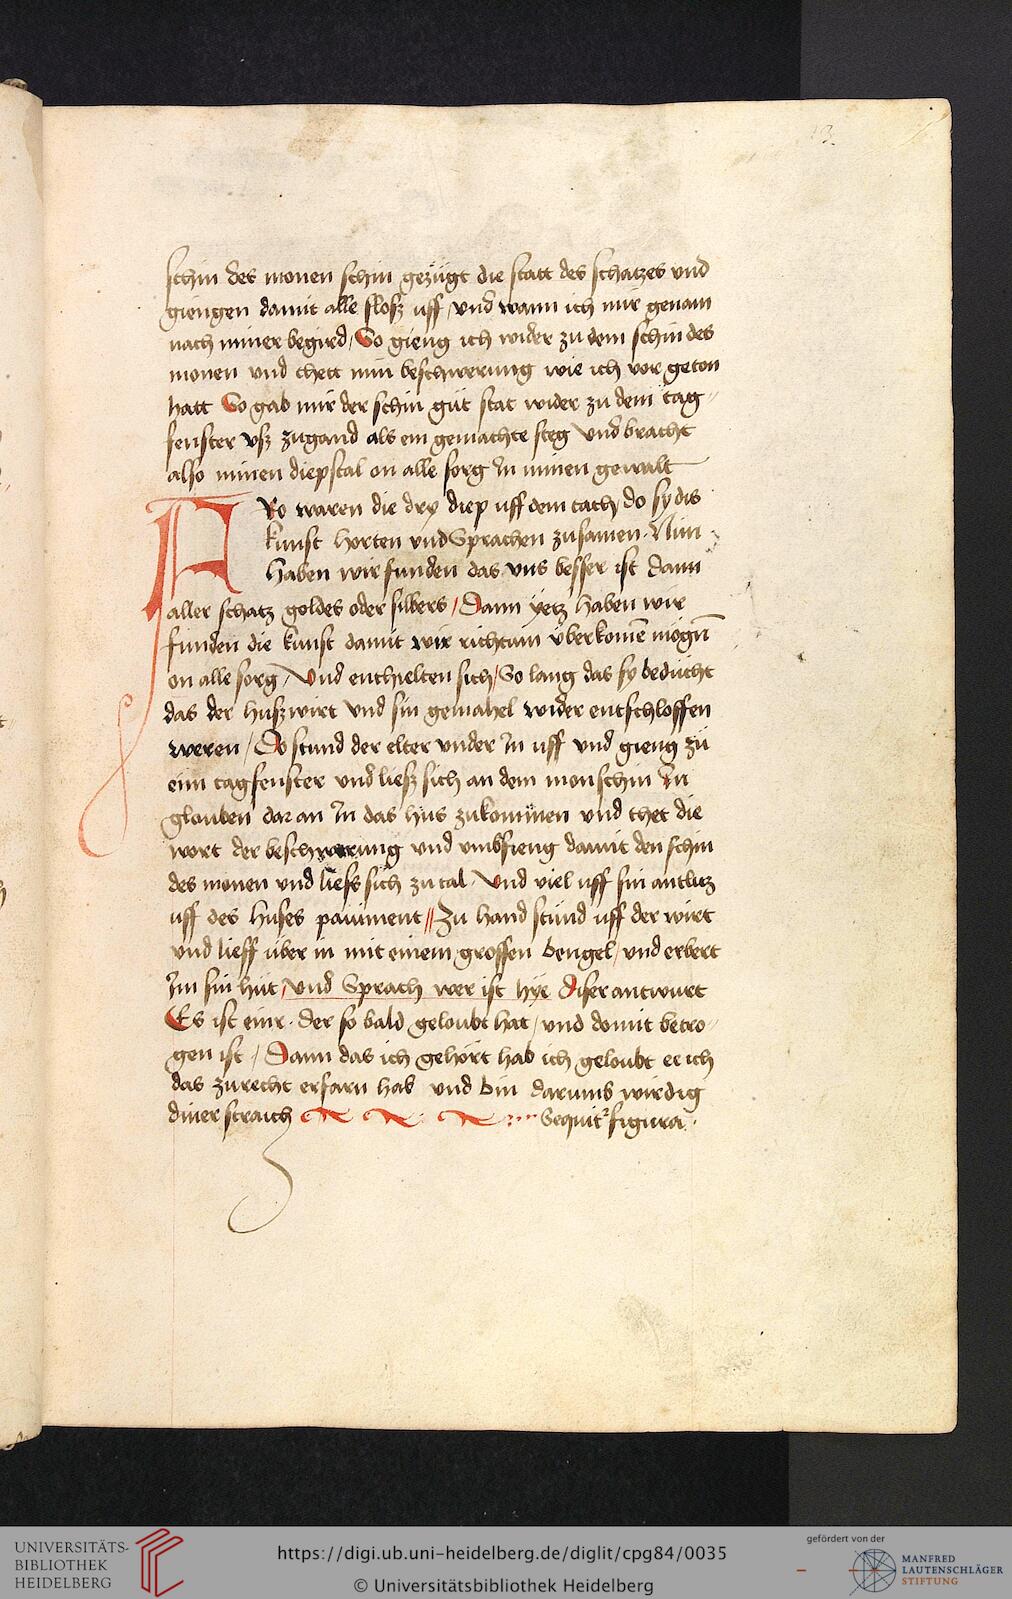 13.
schin des monen schin gezügt die statt des schatzes vnd
giengen damit alle slosz uff / vnd wann ich mir genam
nach miner begird / So gieng ich wider zu dem schin des
monen vnd thett min beschwerung wie ich vor geton
hatt So gab mir der schin güt stat wider zu dem tag-
fenster vsz zugand als ein gemachte steg vnd bracht
also minen diepstal on alle sorg In minen gewalt
FRo waren die dry diep uff dem tach / do sy dis
kunst horten vnd Sprachen zusamen. Nun
haben wir funden das vns besser ist dann
aller schatz goldes oder silbers / Dann yetz haben wir
funden die kunst damit wir richtum überkomē mögn̄
on alle sorg / Vnd enthielten sich / So lang das sy beducht
das der huszwirt vnd sin gemahel wider entschloffen
weren / Do stund der elter vnder In uff vnd gieng zü
eim tagfenster vnd liesz sich an dem monschin In
glouben dar an In das hüs zukommen vnd thet die
wort der beschwerung vnd vmbfieng damit den schin
des monen vnd liess sich zu tal. Vnd viel uff sin antlitz
uff des huses paument // Zu hand stünd uff der wirt
vnd lieff über in mit einem grossen bengel / vnd erbert
Im sin hüt / vnd Sprach wer ist hye Diser antwurt
Es ist einr. der so bald geloubt hat / vnd domit betro-
gen ist / Dann das ich gehört hab ich geloubt ee ich
das zurecht erfarn hab vnd bin darumb wirdig
diner straich Sequit᷑ figura.
UNIVERSITÄTS-
BIBLIOTHEK
HEIDELBERG
https://digi.ub.uni-heidelberg.de/diglit/cpg84/0035
© Universitätsbibliothek Heidelberg
gefördert von der
MANFRED
LAUTENSCHLÄGER
STIFTUNG